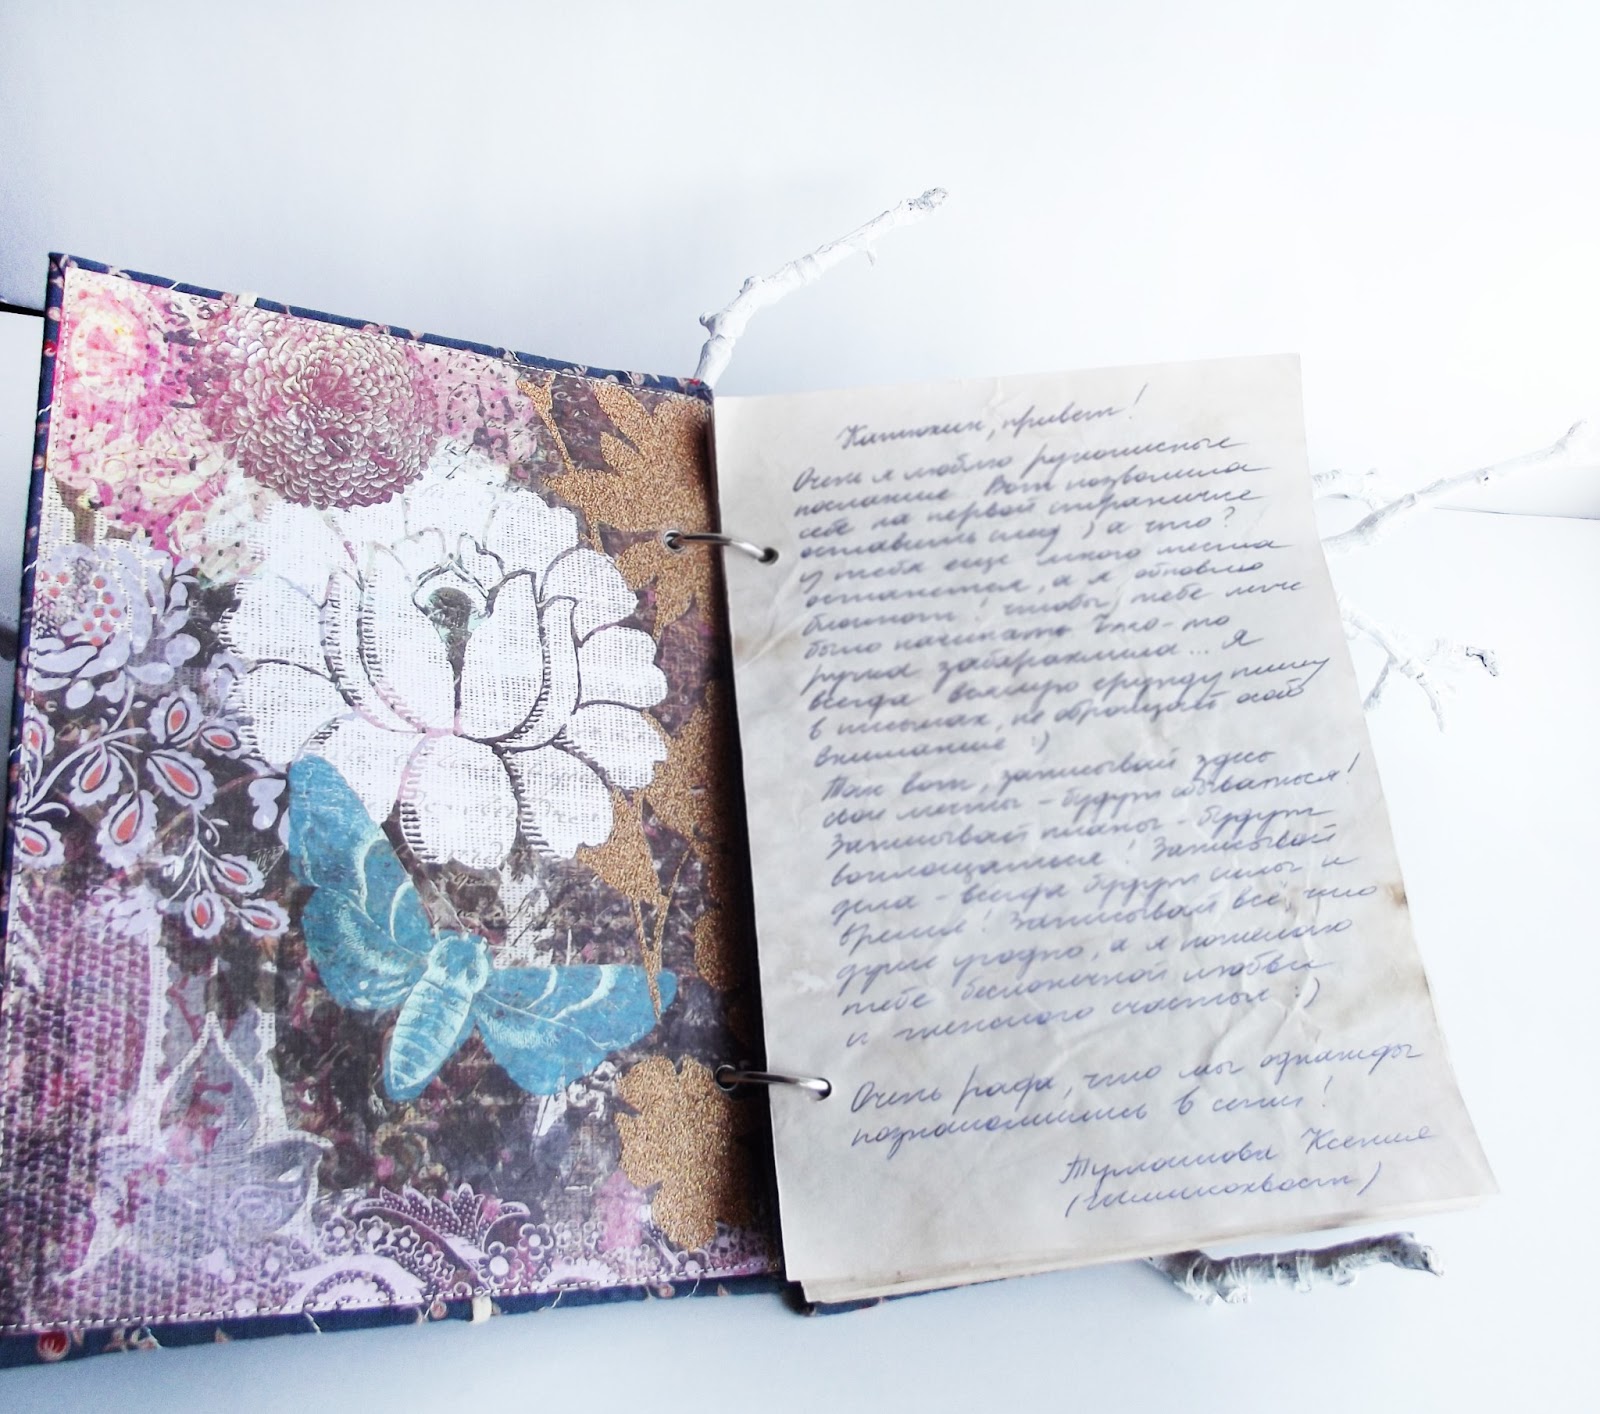 Катюхин, привет!
Очень я люблю рукописные
послание. Вот позволила
себе на первой страничке
оставить след) а что?
у тебя еще много места
останется, а я обновлю
блокнот! чтобы тебе легче
было начинать Что-то
ручка забарахлила... Я
всегда всякую ерунду пишу
в письмах, не обращай особ
внимание :)
Так вот, записывай здесь
свои мечты - будут сбываться!
Записывай планы - будут
воплощаться! Записывай
дела - всегда будут силы и
время! Записывай всё, что
душе угодно, а я пожелаю
тебе бесконечной любви
и женского счастья :)
Очень рада, что мы однажды
познакомились в сети!
Ксения